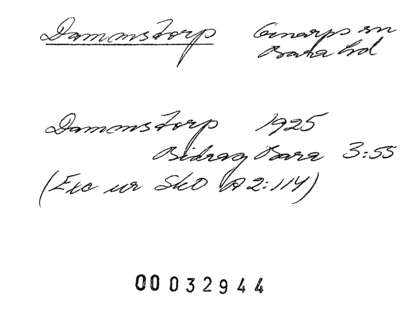 Dammstorp Genarps sn
Bara hd
Dammstorp 1925
Bidrag Bara 3:55
(Exc ur SkO A2:114)
00032944